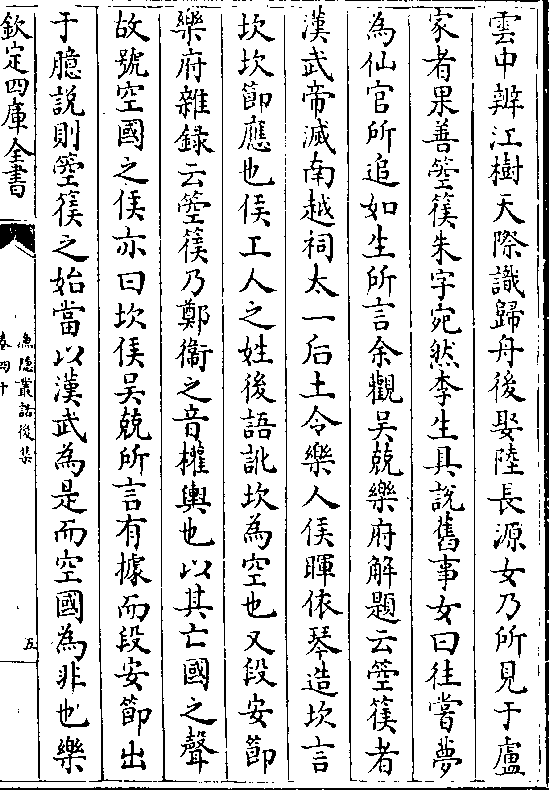 雲中辨江樹天際識歸舟後娶陸長源女乃所見于盧
家者果善箜篌朱字宛然李生具說舊事女曰往嘗夢
為仙官所追如生所言余觀吳兢樂府解題云箜篌者
漢武帝滅南越祠太一后土令樂人侯暉依琴造坎言
坎坎節應也侯工人之姓後語訛坎為空也又段安節
樂府雜録云箜篌乃鄭衞之音權輿也以其亡國之聲
故號空國之侯亦曰坎侯吳兢所言有據而段安節出
于臆說則箜篌之始當以漢武為是而空國為非也樂
欽定四庫全書
漁隱叢話後集
卷四十
五